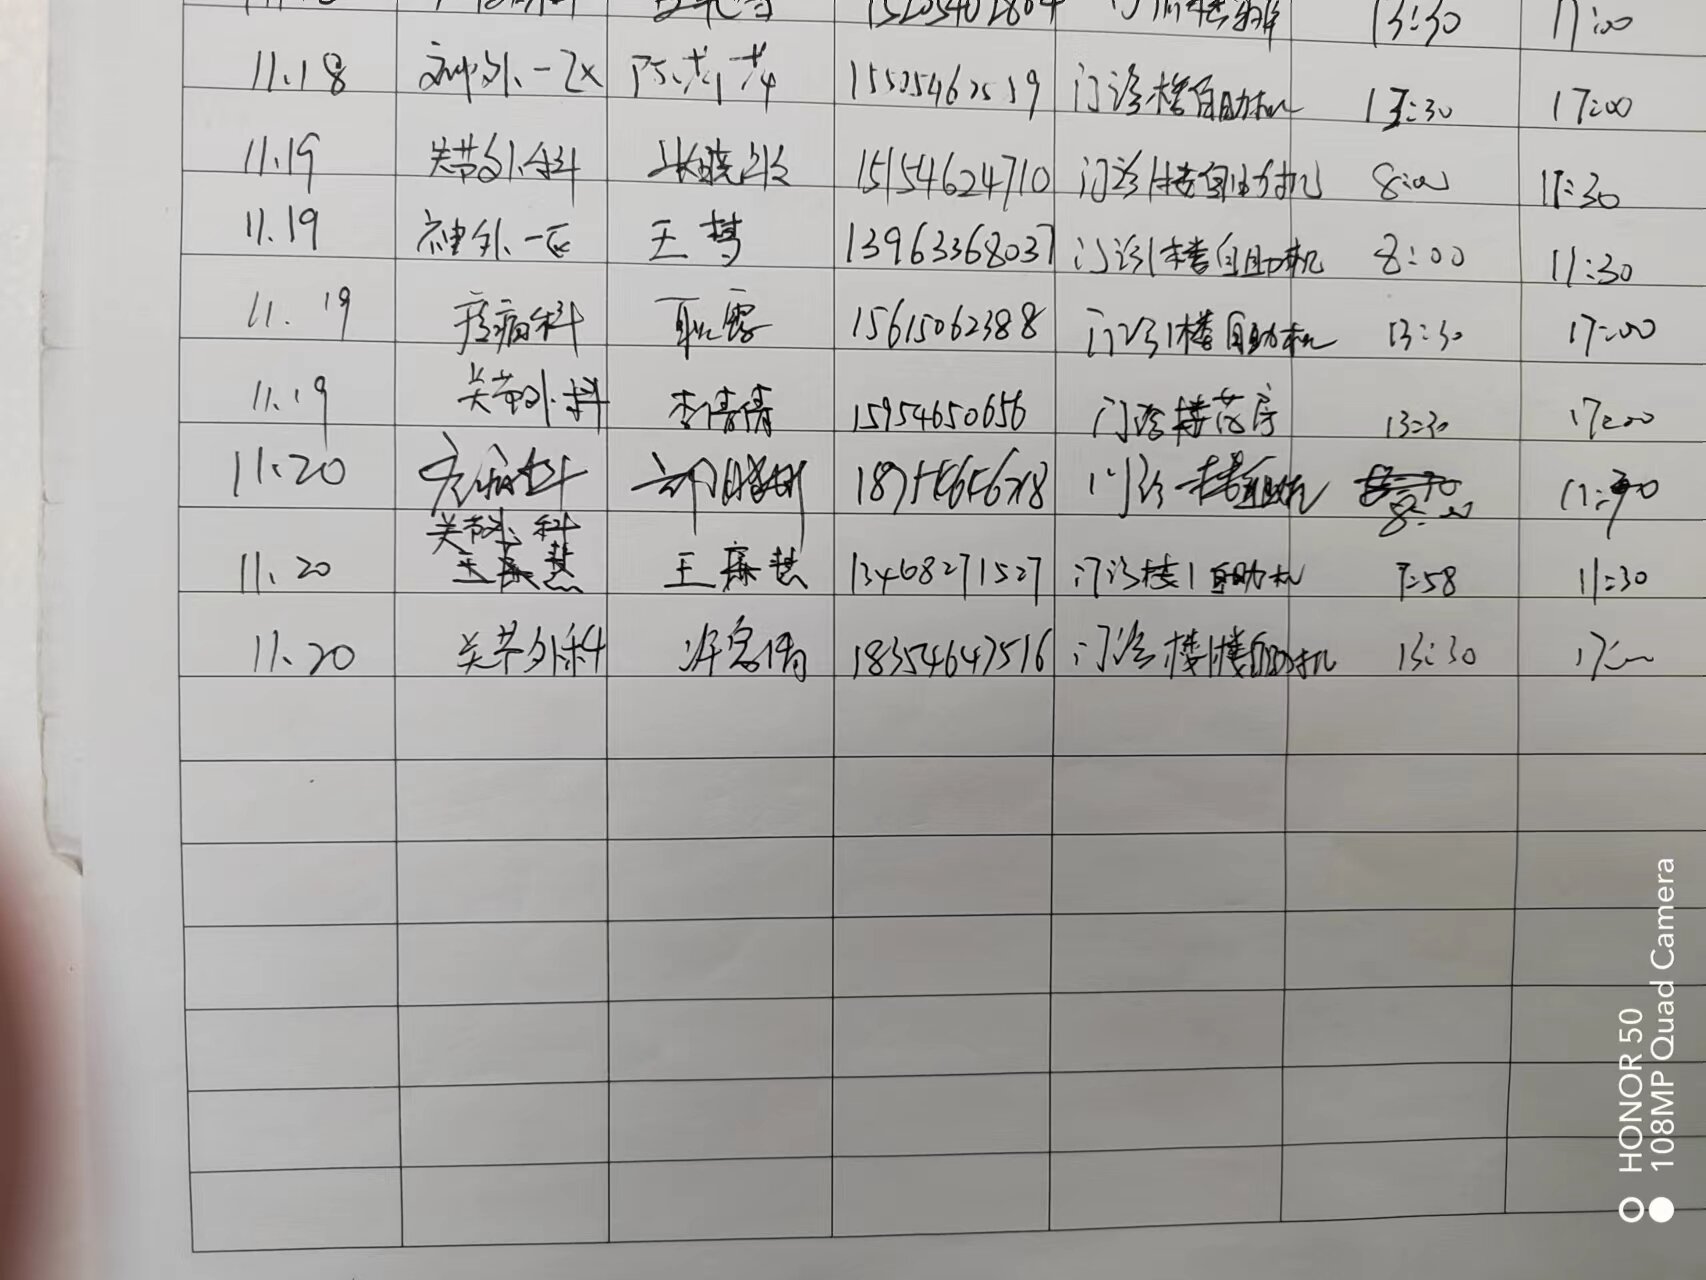 13:30 17:00
11.18 神外一区 门诊楼自助机 13:30 17:00
11.19 关节外科 张晓 15154624710 门诊1楼自助机 8:00 11:30
11.19 神外一区 王梦 13963368037 门诊1楼自助机 8:00 11:30
11.19 疼病科 耿霞 15615062388 门诊1楼自助机 13:30 17:00
11.19 关节外科 李倩倩 15954650656 门诊楼药房 13:30 17:00
11.20 门诊一楼自助机 8:00
关节外科
11.20 王 慧 13468271527 门诊楼1自助机 7:58 11:30
11.20 关节外科 18354647516 门诊楼1楼自助机 13:30 17:00
HONOR 50
108MP Quad Camera